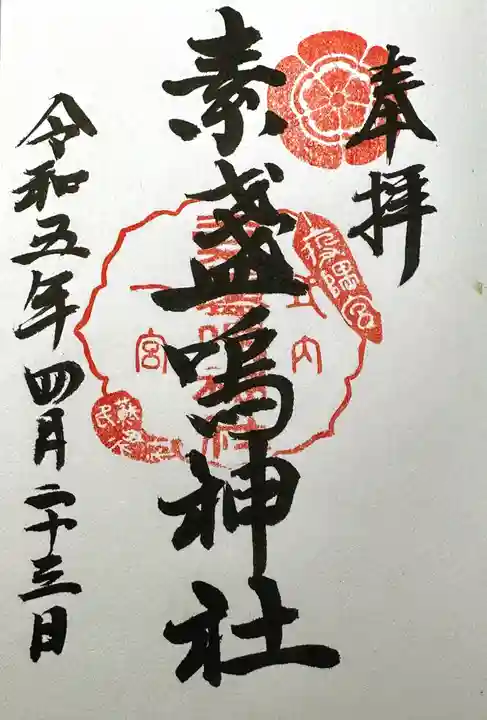 奉拝
素盞嗚神社
式内
一宮
令和五年四月二十三日